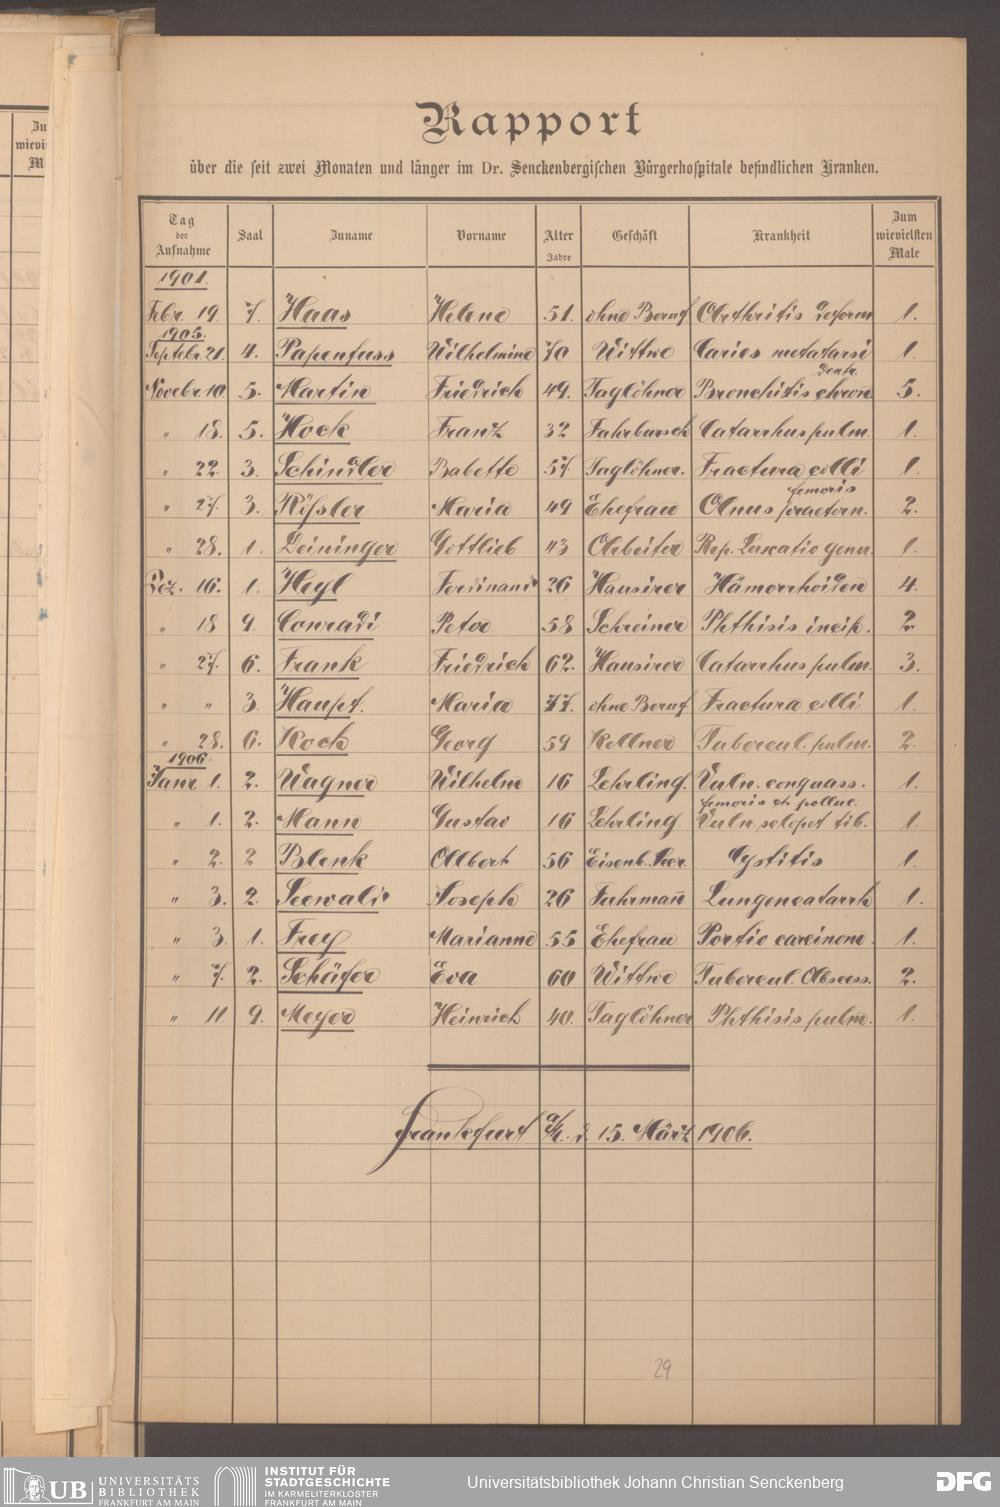 Rapport
über die seit zwei Monaten und länger im Dr. Senckenbergischen Bürgerhospitale befindlichen Kranken.
Tag der Aufnahme Saal Zuname Vorname Alter Jahre Geschäft Krankheit Zum wievielsten Male
1901.
Febr. 19. 7. Haas Helene 51. ohne Beruf Arthritis deform 1.
1905.
Septbr. 21. 4. Papenfuss Wilhelmine 70 Wittwe Caries metatarsi 1.
Novebr. 10. 5. Martin Friedrich 49. Taglöhner Bronchitis chron. 5.
" 18. 5. Hock Franz 32 Fahrbursch Catarrhus pulm. 1.
" 22. 3. Schindler Babette 57 Taglöhner. Fractura colli 1.
femoris
" 27. 3. Rißler Maria 49 Ehefrau 2.
" 28. 1. Deininger Gottlieb 43 Arbeiter Rep. Luxatio genu. 1.
Dez. 16. 1. Heyl Ferdinand 26 Hausirer Hämorrhoiden 4.
" 18 9. Conradi Peter 58 Schreiner Phthisis incip. 2
" 27. 6. Frank Friedrich 62. Hausirer Catarrhus pulm. 3.
" " 3. Haupt. Maria 77. ohne Beruf Fractura colli 1.
" 28. 6. Koch Georg 59 Kellner Tubercul. pulm. 2.
1906.
Janr 1. 2. Wagner Wilhelm 16 Lehrling. Vuln. conquass. 1.
femoris et pollic.
" 1. 2. Mann Gustav 16 Lehrling. Vuln. sclopet tib. 1.
" 2. 2 Blenk Albert 56 Eisenb. Secr. Cystitis 1.
" 3. 2. Seewald Joseph 26 Fuhrmañ Lungencatarrh 1.
" 3. 1. Frey Marianne 55 Ehefrau Portio carcinom. 1.
" 7. 2. Schäfer Eva 60 Wittwe Tubercul. Abscess. 2.
" 11. 9. Meyer Heinrich 40. Taglöhner Phthisis pulm. 1.
Frankfurt a/M. d. 15. März 1906.
29
UB UNIVERSITÄTS
BIBLIOTHEK
FRANKFURT AM MAIN
INSTITUT FÜR
STADTGESCHICHTE
IM KARMELITERKLOSTER
FRANKFURT AM MAIN
Universitätsbibliothek Johann Christian Senckenberg
DFG